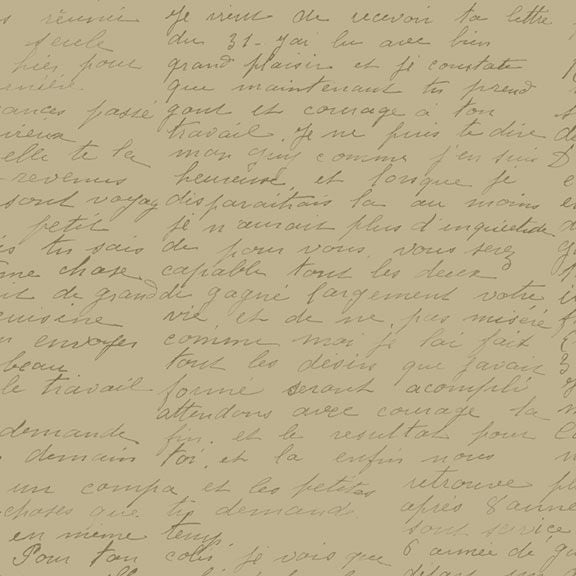 réunir
seule
pour
ances passé
elle te la
revenus
sont voyag
petit
is tu sais
me chose
it de grand
cuisine
envoyer
beau
le travail
demande
demain
Je vient de recevoir ta lettre
du 31 - j'ai lu avec bien
grand plaisir et je constate
que maintenant tu prend
gout et courage à ton
travail. Je ne puis te dire
mon guy comme j'en suis
heureuse, et lorsque je
disparaîtrais la au moins
je n'aurait plus d'inquiétude
de pour vous, vous serez
capable tout les deux
de gagné largement votre
vie et de ne pas miséré
comme moi je l'ai fait
tout les désirs que j'avait
formé seront acompli
attendons avec courage la
fin. et le resultat pour
toi. et la enfin nous
un compa et les petites
choses que tu demande
en même temp
Pour ton colis, je vois que
retrouve
après 8 année
sont service
6 année de